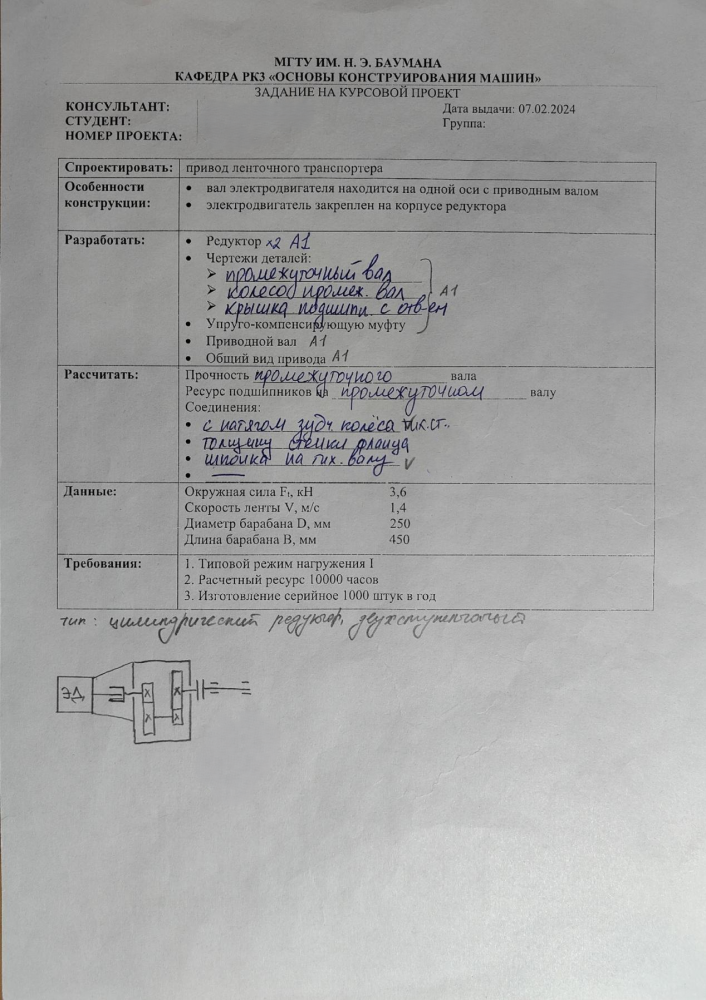 МГТУ ИМ. Н. Э. БАУМАНА
КАФЕДРА РК3 «ОСНОВЫ КОНСТРУИРОВАНИЯ МАШИН»
ЗАДАНИЕ НА КУРСОВОЙ ПРОЕКТ
КОНСУЛЬТАНТ: Дата выдачи: 07.02.2024
СТУДЕНТ: Группа:
НОМЕР ПРОЕКТА:
Спроектировать: привод ленточного транспортера
Особенности конструкции: • вал электродвигателя находится на одной оси с приводным валом
• электродвигатель закреплен на корпусе редуктора
Разработать: • Редуктор x2 А1
• Чертежи деталей:
➢ промежуточный вал
➢ колесо промеж. вал А1
➢ крышка подшипн. с отв-ем
• Упруго-компенсирующую муфту
• Приводной вал А1
• Общий вид привода А1
Рассчитать: Прочность промежуточного вала
Ресурс подшипников на промежуточном валу
Соединения:
• с натягом зубч. колеса тих.ст.
• толщину стенки фланца
• шпонка на тих. валу V
•
Данные: Окружная сила Ft, кН 3,6
Скорость ленты V, м/с 1,4
Диаметр барабана D, мм 250
Длина барабана B, мм 450
Требования: 1. Типовой режим нагружения I
2. Расчетный ресурс 10000 часов
3. Изготовление серийное 1000 штук в год
тип: цилиндрический редуктор, двухступенчатый
ЭД